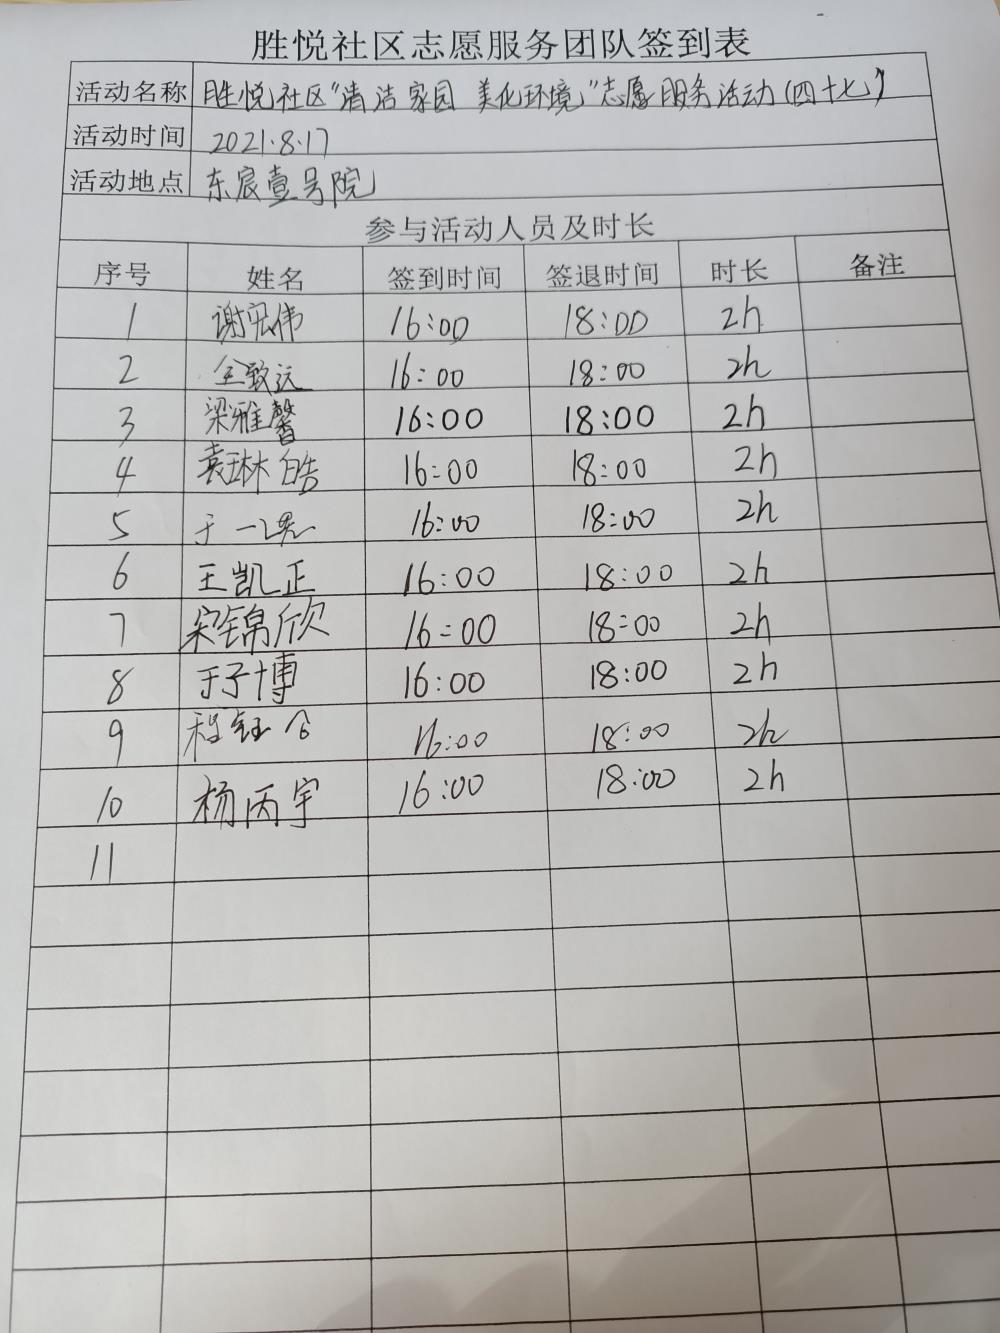 胜悦社区志愿服务团队签到表
活动名称 胜悦社区“清洁家园 美化环境”志愿服务活动(四十七)
活动时间 2021.8.17
活动地点 东宸壹号院
参与活动人员及时长
序号 姓名 签到时间 签退时间 时长 备注
1 谢宏伟 16:00 18:00 2h
2 全致远 16:00 18:00 2h
3 梁雅馨 16:00 18:00 2h
4 袁琳皓 16:00 18:00 2h
5 于一 16:00 18:00 2h
6 王凯正 16:00 18:00 2h
7 宋锦欣 16:00 18:00 2h
8 于子博 16:00 18:00 2h
9 程钰 16:00 18:00 2h
10 杨丙宇 16:00 18:00 2h
11